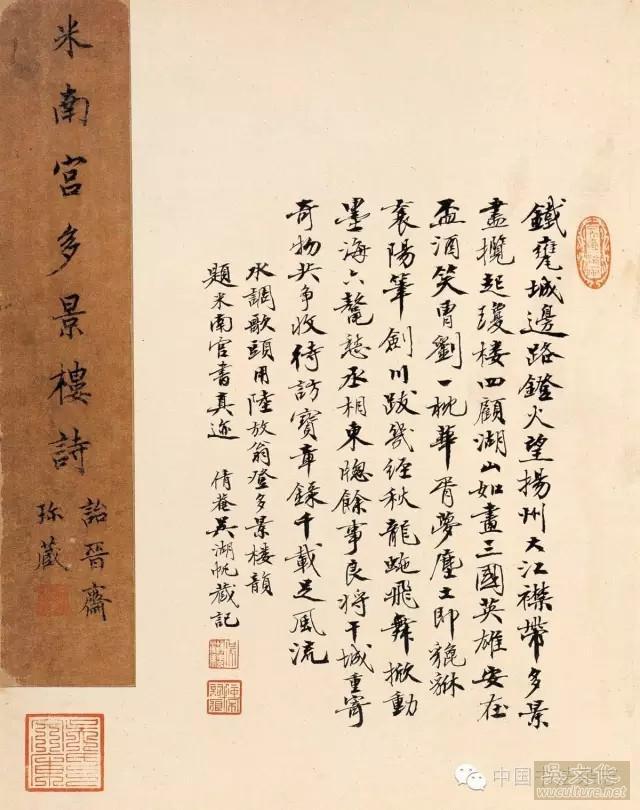 鐵甕城邊路鐙火望揚州大江襟帶多景
盡攬起瓊樓四顧湖山如畫三國英雄安在
盃酒笑曹劉一枕華胥夢塵土即貔貅
襄陽筆劍川跋幾經秋龍蛇飛舞掀動
墨海六鼇愁丞相東牕餘事良將干城重寄
奇物共爭收待訪寶章錄千載足風流
水調歌頭用陸放翁登多景楼韻
題米南宮書真迹 倩菴吳湖帆藏記
米南宮多景樓詩
詒晉齋
珎藏
中国
吳文化
wuculture.net